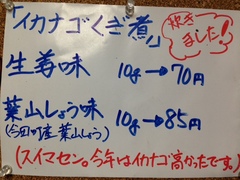 「イカナゴくぎ煮」
炊き
ました!!
生姜味 10g→70円
葉山しょう味 10g→85円
(今田町産葉山しょう)
(スイマセン。今年はイカナゴ高かったです。)